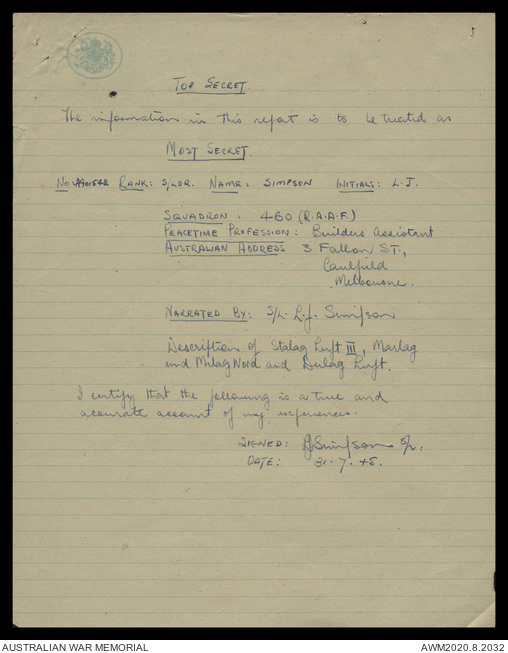 TOP SECRET.
The information in this report is to be treated as
MOST SECRET.
No. A401542 RANK: S/LDR. NAME: SIMPSON INITIALS: L.J.
SQUADRON: 460 (R.A.A.F.)
PEACETIME PROFESSION: Builders Assistant
AUSTRALIAN ADDRESS 3 Fallon ST.,
Caulfield
Melbourne.
NARRATED BY: S/L. L.J. Simpson
Description of Stalag Luft III, Marlag
und Milag Nord and Dulag Luft.
I certify that the following is a true and
accurate account of my experiences.
SIGNED: LJSimpson S/L.
DATE: 31.7.45.
AUSTRALIAN WAR MEMORIAL
AWM2020.8.2032